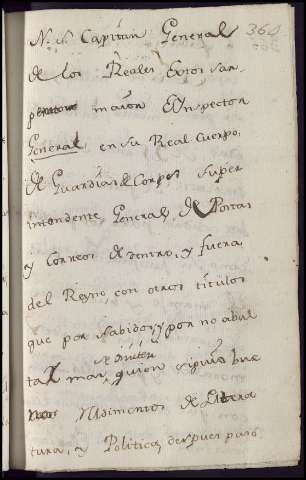 364
N. S. Capitan General
de los Reales Extos sar
maior Eynspector
General en su Real Cuerpo,
de Guardias de Corps super
intendente General de Postas
y Correos de dentro, y fuera
del Reyno con otros titulos
que por sabidos y por no abul
tar mas quien
Rudimentos de Litera
tura, y Politica despues paso